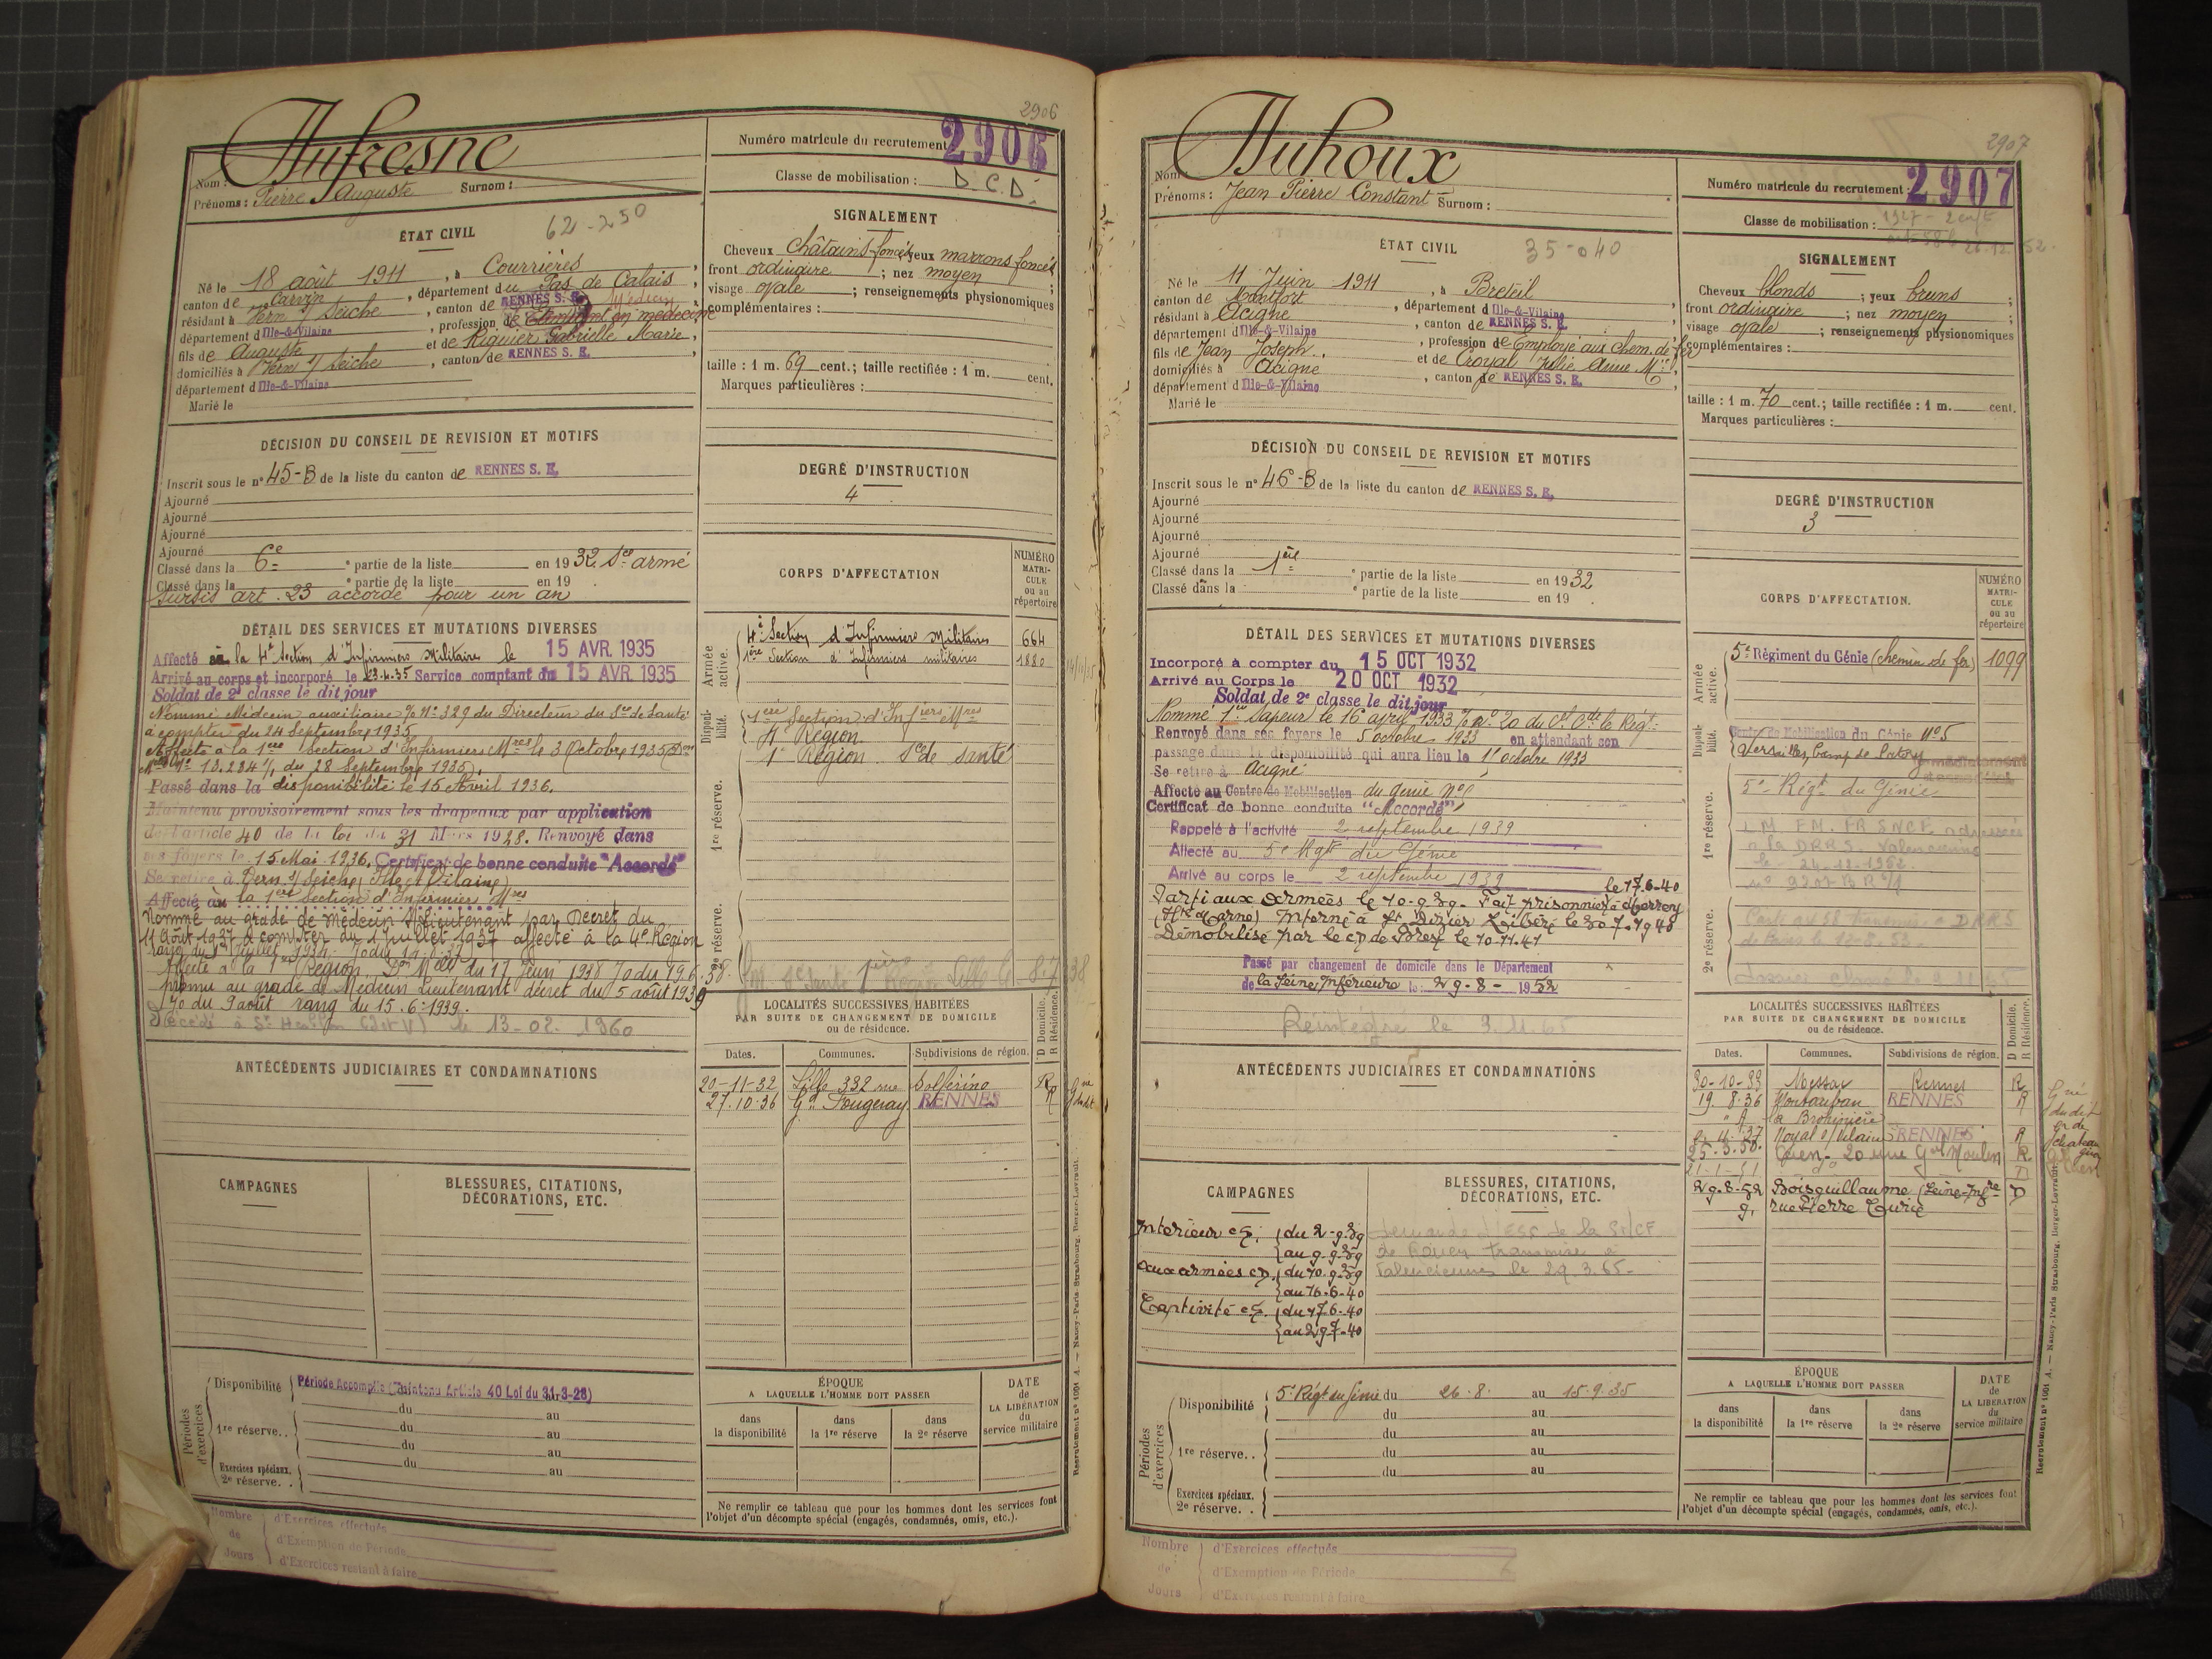 2906
Dufresne
Nom :
Prénoms : Pierre Auguste Surnom :
Numéro matricule du recrutement 2906
Classe de mobilisation : D.C.D.
ÉTAT CIVIL
62-250
Né le 18 août 1911, à Courrières,
canton de Carvin, département du Pas de Calais,
résidant à Vern s/ Seiche, canton de RENNES S. E.
département d'Ille-&-Vilaine, profession de Etudiant en médecine
Médecin
fils de Auguste et de Riquier Gabrielle Marie,
domiciliés à Vern s/ Seiche, canton de RENNES S. E.
département d'Ille-&-Vilaine
Marié le
SIGNALEMENT
Cheveux châtains foncés yeux marrons foncés
front ordinaire ; nez moyen ;
visage ovale ; renseignements physionomiques
complémentaires :
taille : 1 m. 69 cent.; taille rectifiée : 1 m. cent.
Marques particulières :
DÉCISION DU CONSEIL DE REVISION ET MOTIFS
Inscrit sous le n° 45-B de la liste du canton de RENNES S. E.
Ajourné
Ajourné
Ajourné
Ajourné
Classé dans la 6e ° partie de la liste en 1932 Sce armé
Classé dans la ° partie de la liste en 19
sursis art. 23 accordé pour un an
DEGRÉ D'INSTRUCTION
4
CORPS D'AFFECTATION
NUMÉRO MATRI-CULE ou au répertoire
DÉTAIL DES SERVICES ET MUTATIONS DIVERSES
Affecté à la 4e Section d'Infirmiers Militaires le 15 AVR. 1935
Arrivé au corps et incorporé le 23.4.35 Service comptant du 15 AVR. 1935
Soldat de 2e classe le dit jour
Nommé Médecin auxiliaire % N° 329 du Directeur du Sce de Santé
à compter du 24 Septembre 1935
Affecté à la 1ère Section d'Infirmiers Mres le 3 Octobre 1935
N° 13.284 1/1 du 28 Septembre 1935).
Passé dans la disponibilité le 15 Avril 1936.
Maintenu provisoirement sous les drapeaux par application
de l'article 40 de la loi du 31 Mars 1928. Renvoyé dans
ses foyers le 15 Mai 1936. Certificat de bonne conduite "Accordé"
Se retire à Vern s/ Seiche, Ille et Vilaine
Affecté à la 1ère Section d'Infirmiers Mres
Nommé au grade de Médecin S/Lieutenant par Décret du
11 Août 1937 à compter du 1 juillet 1937 affecté à la 4e Région
Affecté à la 1ère Région. du 17 Juin 1938 Jo du 19.6.38.
promu au grade de Médecin Lieutenant décret du 5 août 1939
Jo du 9 août rang du 15.6.1939.
Décédé à le 13-02.1960
Armée active.
4e Section d'Infirmiers Militaires 664
1ère Section d'Infirmiers militaires 1880
Disponi-bilité.
1ère Section d'Infiers Mres
4e Région
1re réserve.
1e Région Sce de santé
2e réserve.
LOCALITÉS SUCCESSIVES HABITÉES
PAR SUITE DE CHANGEMENT DE DOMICILE
ou de résidence.
D Domicile.
R Résidence.
Dates. Communes. Subdivisions de région.
20-11-32 Lille 332 rue Solférino R
27.10.36 Gd Fougeray RENNES R
ANTÉCÉDENTS JUDICIAIRES ET CONDAMNATIONS
CAMPAGNES
BLESSURES, CITATIONS,
DÉCORATIONS, ETC.
Périodes d'exercices
Disponibilité Période Accomplie (Maintenu Article 40 Loi du 31-3-28)
du au
1re réserve.. du au
du au
du au
Exercices spéciaux.
2e réserve. .
ÉPOQUE
A LAQUELLE L'HOMME DOIT PASSER
dans la disponibilité
dans la 1re réserve
dans la 2e réserve
DATE de LA LIBÉRATION du service militaire
Ne remplir ce tableau que pour les hommes dont les services font
l'objet d'un décompte spécial (engagés, condamnés, omis, etc.).
Nombre de Jours
d'Exercices effectués
d'Exemption de Période
d'Exercices restant à faire
Recrutement n° 1001 A. — Nancy-Paris-Strasbourg, Berger-Levrault.
2907
Duhoux
Nom
Prénoms : Jean Pierre Constant Surnom :
Numéro matricule du recrutement : 2907
Classe de mobilisation :
ÉTAT CIVIL
35-040
Né le 11 Juin 1911, à Breteil
canton de Montfort, département d'Ille-&-Vilaine
résidant à Acigné, canton de RENNES S. E.
département d'Ille-&-Vilaine, profession de Employé aux chem. de fer
fils de Jean Joseph et de Croyal Julie Anne Mie,
domiciliés à Acigné, canton de RENNES S. E.
département d'Ille-&-Vilaine
Marié le
SIGNALEMENT
Cheveux blonds ; yeux bruns ;
front ordinaire ; nez moyen ;
visage ovale ; renseignements physionomiques
complémentaires :
taille : 1 m. 70 cent.; taille rectifiée : 1 m. cent.
Marques particulières :
DÉCISION DU CONSEIL DE REVISION ET MOTIFS
Inscrit sous le n° 46-B de la liste du canton de RENNES S. E.
Ajourné
Ajourné
Ajourné
Ajourné
Classé dans la 1ère ° partie de la liste en 1932
Classé dans la ° partie de la liste en 19
DEGRÉ D'INSTRUCTION
3
CORPS D'AFFECTATION.
NUMÉRO MATRI-CULE ou au répertoire
DÉTAIL DES SERVICES ET MUTATIONS DIVERSES
Incorporé à compter du 15 OCT 1932
Arrivé au Corps le 20 OCT 1932
Soldat de 2e classe le dit jour
Nommé 1er Sapeur le 16 avril 1933 % N° 20 du Cl Cdt le Régt
Renvoyé dans ses foyers le 5 octobre 1933 en attendant son
passage dans la disponibilité qui aura lieu le 15 octobre 1933
Se retire à Acigné
Affecté au Centre de Mobilisation du génie N°5
Certificat de bonne conduite "Accordé"
Rappelé à l'activité 2 septembre 1939
Affecté au 5e Rgt du Génie
Arrivé au corps le 2 septembre 1939
Parti aux Armées le 10-9-39. Fait prisonnier le 17-6-40
(Hte Marne) Interné à St Dizier Libéré le 30-7-1940
Démobilisé par le cp de Brest le 10-11-41
Passé par changement de domicile dans le Département
de la Seine Inférieure le 29-8-1952
Réintégré le 3.11.65
Armée active.
5e Régiment du Génie (chemins de fer) 1099
Disponi-bilité.
Centre de Mobilisation du Génie N°5
Versailles, Camp de Satory
1re réserve.
5e Régt du Génie
2e réserve.
ANTÉCÉDENTS JUDICIAIRES ET CONDAMNATIONS
LOCALITÉS SUCCESSIVES HABITÉES
PAR SUITE DE CHANGEMENT DE DOMICILE
ou de résidence.
D Domicile.
R Résidence.
Dates. Communes. Subdivisions de région.
30-10-33 Messac Rennes R
19.8.36 Montauban RENNES R
la Brohinière
Noyal s/ Vilaine RENNES R
25.3.50. Caen - 20 rue Gd Moulin R
21-1-51 do D
29-8-52 Boisguillaume (Seine-Infre D
9, rue Pierre Curie
CAMPAGNES
Intérieur cs. du 2-9-39
au 9-9-39
Aux armées cp. du 10-9-39
au 16-6-40
Captivité cs. du 17-6-40
au 29-7-40
BLESSURES, CITATIONS,
DÉCORATIONS, ETC.
Demande d'ESS de la SNCF
de Rouen transmise à
Valenciennes le 29.3.65-
Périodes d'exercices
Disponibilité 5e Régt du Génie du 26.8. au 15.9.35
du au
1re réserve.. du au
du au
du au
Exercices spéciaux.
2e réserve. .
ÉPOQUE
A LAQUELLE L'HOMME DOIT PASSER
dans la disponibilité
dans la 1re réserve
dans la 2e réserve
DATE de LA LIBÉRATION du service militaire
Ne remplir ce tableau que pour les hommes dont les services font
l'objet d'un décompte spécial (engagés, condamnés, omis, etc.).
Nombre de Jours
d'Exercices effectués
d'Exemption de Période
d'Exercices restant à faire
Recrutement n° 1001 A. — Nancy-Paris-Strasbourg, Berger-Levrault.